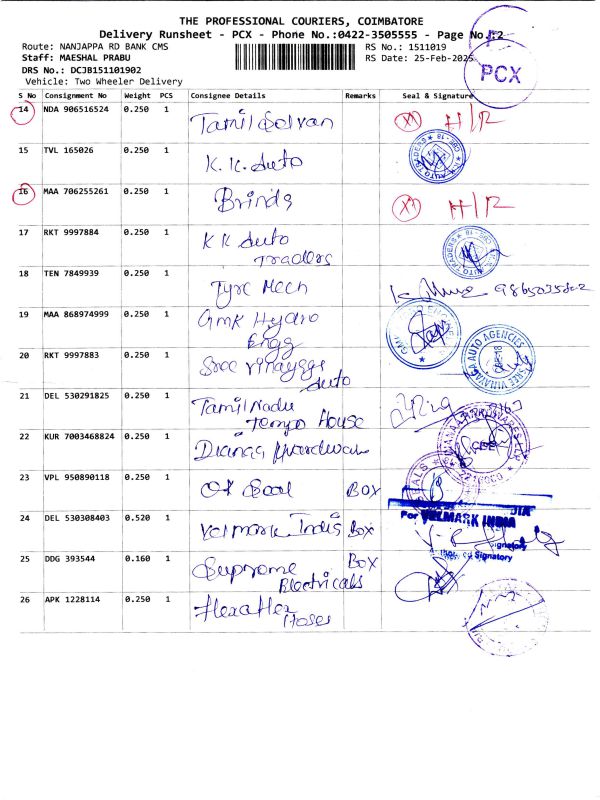 THE PROFESSIONAL COURIERS, COIMBATORE
Delivery Runsheet - PCX - Phone No.:0422-3505555 - Page No.:2
Route: NANJAPPA RD BANK CMS
RS No.: 1511019
Staff: MAESHAL PRABU
RS Date: 25-Feb-2025
DRS No.: DCJB151101902
Vehicle: Two Wheeler Delivery
PCX
S No Consignment No Weight PCS Consignee Details Remarks Seal & Signature
14 NDA 906516524 0.250 1 Tamil Selvan H/R
15 TVL 165026 0.250 1 K.K. Auto
16 MAA 706255261 0.250 1 Brinda H/R
17 RKT 9997884 0.250 1 KK Auto
Traders
18 TEN 7849939 0.250 1 Tyre Mech
19 MAA 868974999 0.250 1 GMK Hydro
Engg
20 RKT 9997883 0.250 1 Sree Vinayaga
Auto
VINAYAGA AUTO AGENCIES
21 DEL 530291825 0.250 1 Tamil Nadu
Tempo House
22 KUR 7003468824 0.250 1 Diana Hardware
23 VPL 950890118 0.250 1 Ok Seal BOX
24 DEL 530308403 0.520 1 Velmark India Box
For VELMARK INDIA
Authorised Signatory
25 DDG 393544 0.160 1 Supreme Box
Electricals
26 APK 1228114 0.250 1 Flexa Flex
Hoses